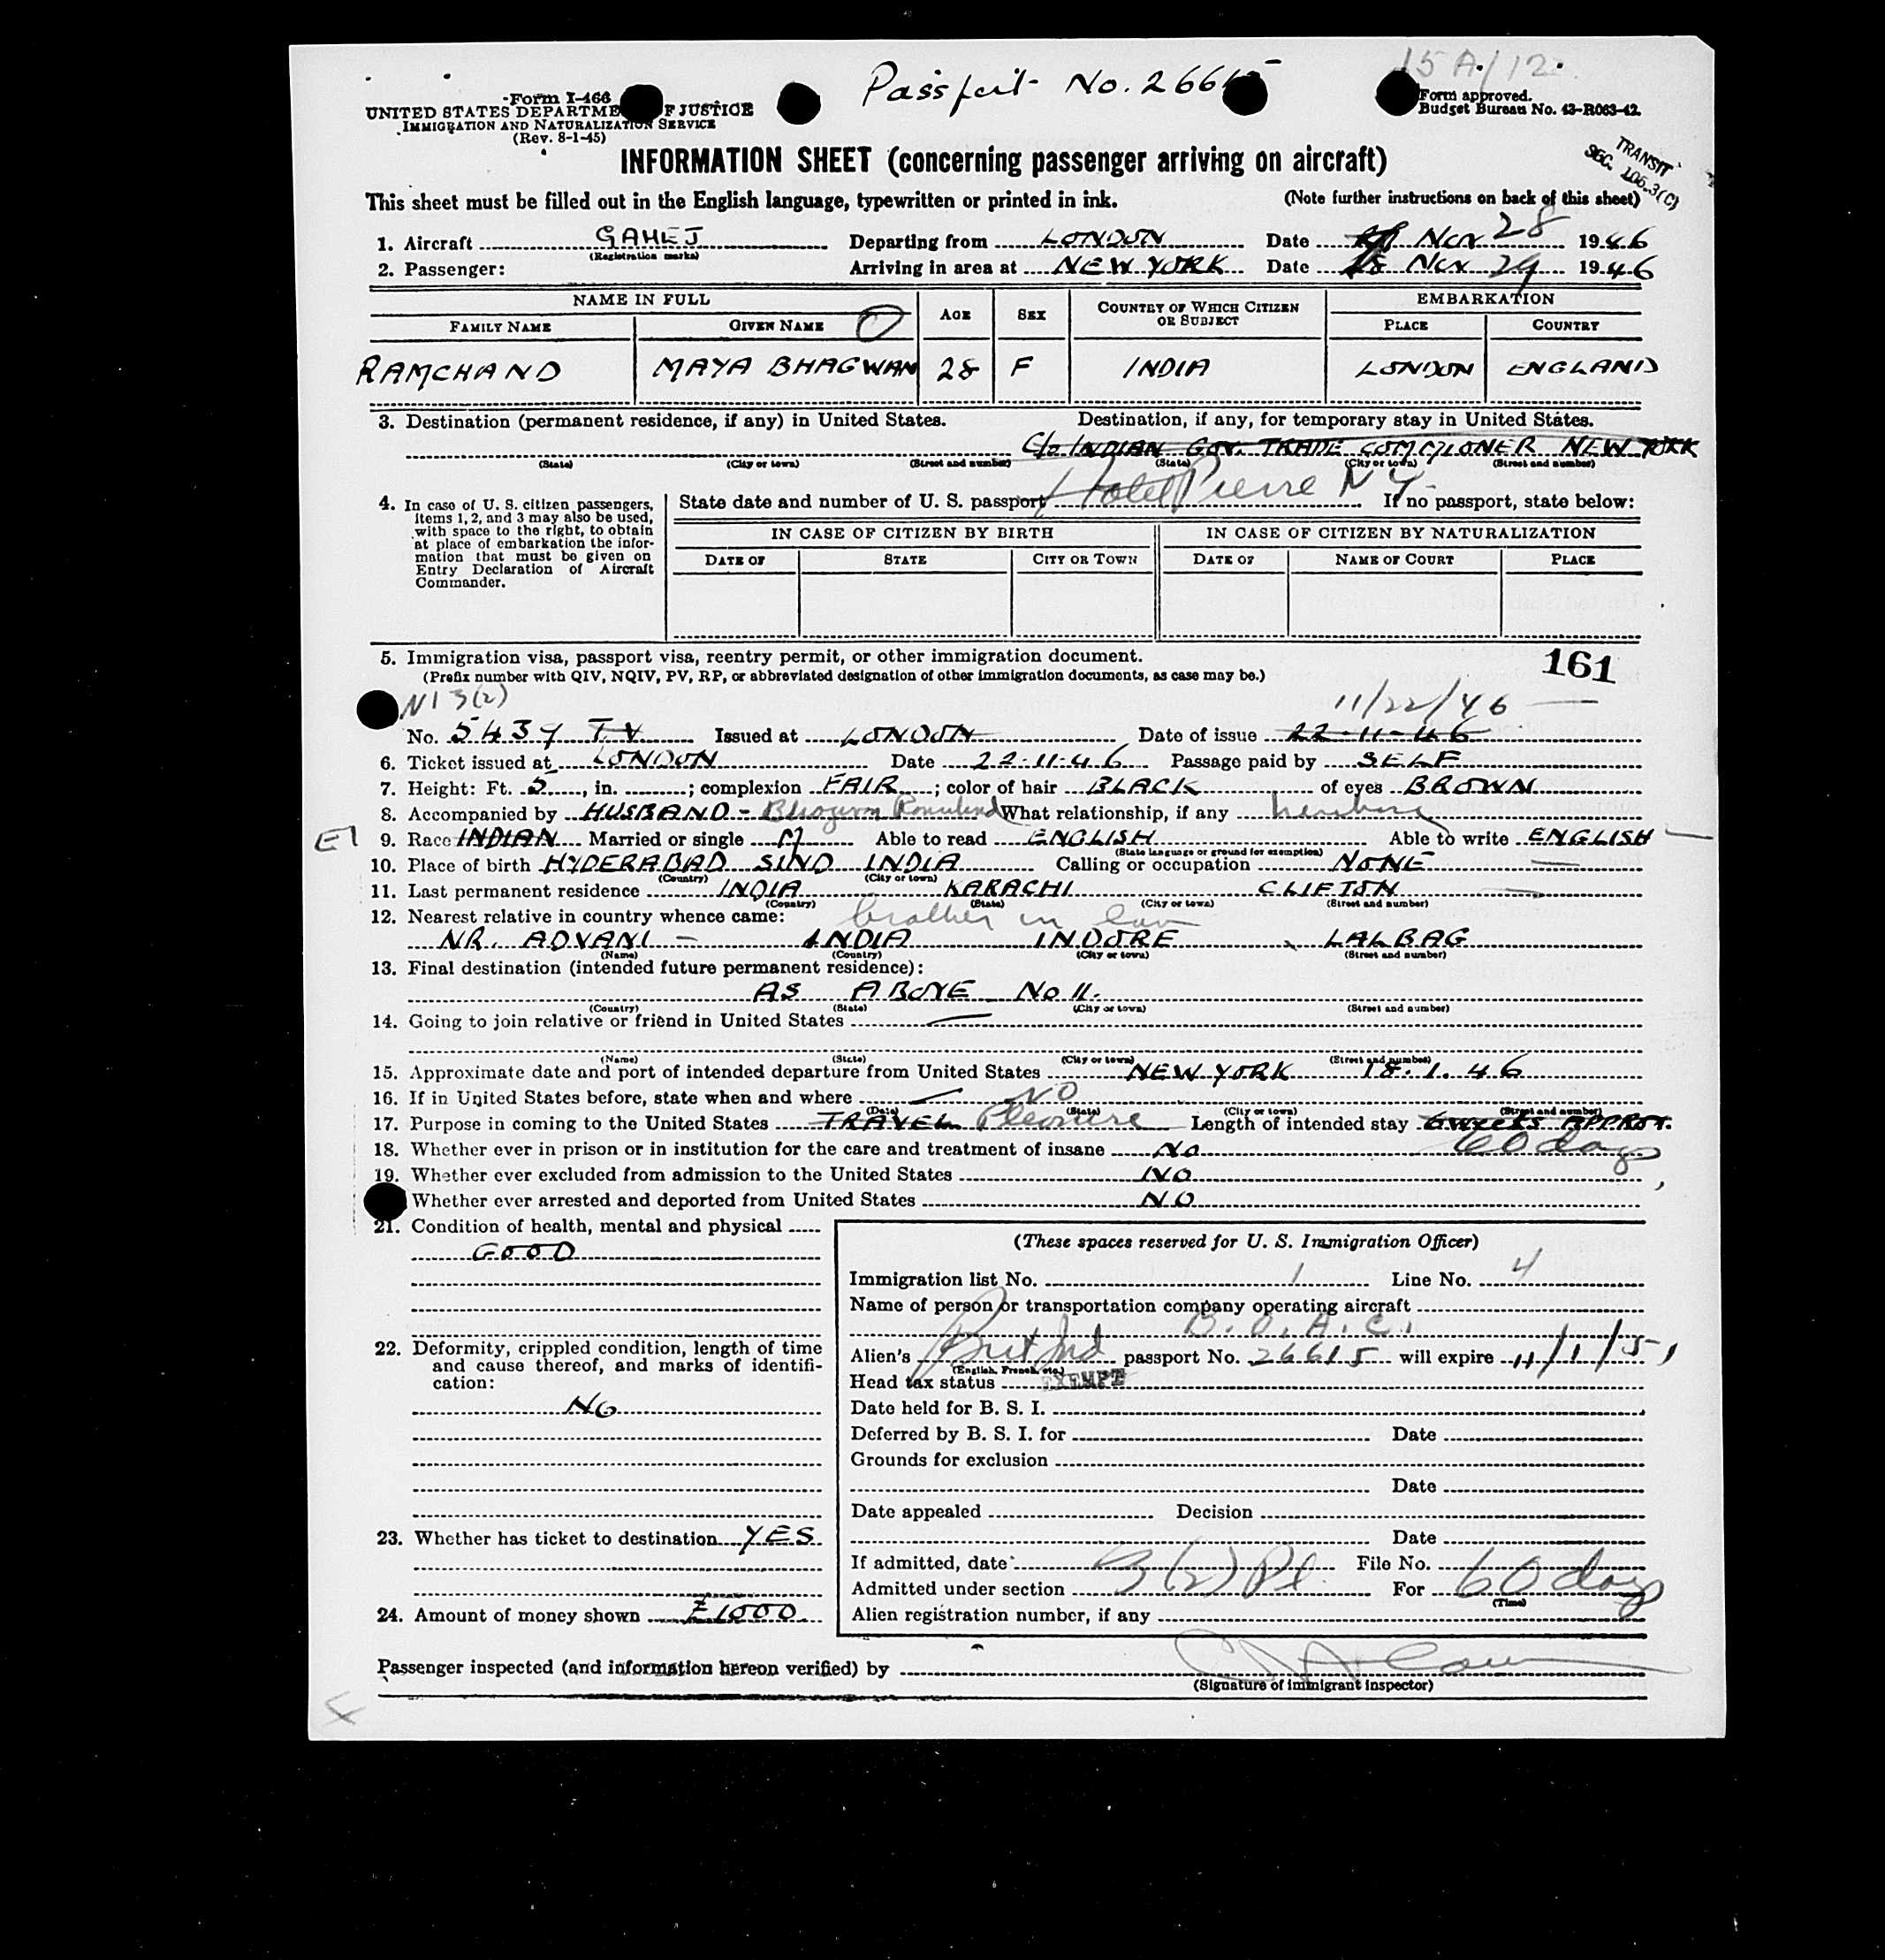 Passport No. 26615
15 A/12
Form I-466
UNITED STATES DEPARTMENT OF JUSTICE
IMMIGRATION AND NATURALIZATION SERVICE
(Rev. 8-1-45)
Form approved.
Budget Bureau No. 43-R063-42.
TRANSIT
SEC. 106.3(C)
INFORMATION SHEET (concerning passenger arriving on aircraft)
This sheet must be filled out in the English language, typewritten or printed in ink. (Note further instructions on back of this sheet)
1. Aircraft GAHEJ Departing from LONDON Date Nov 28 1946
(Registration marks)
2. Passenger: Arriving in area at NEW YORK Date Nov 29 1946
NAME IN FULL AGE SEX COUNTRY OF WHICH CITIZEN OR SUBJECT EMBARKATION
FAMILY NAME GIVEN NAME PLACE COUNTRY
RAMCHAND MAYA BHAGWAN 28 F INDIA LONDON ENGLAND
3. Destination (permanent residence, if any) in United States. Destination, if any, for temporary stay in United States.
C/o INDIAN GOV. TRADE NEW YORK
(State) (City or town) (Street and number) (State) (City or town) (Street and number)
Hotel Pierre N Y.
4. In case of U. S. citizen passengers, items 1, 2, and 3 may also be used, with space to the right, to obtain at place of embarkation the information that must be given on Entry Declaration of Aircraft Commander.
State date and number of U. S. passport If no passport, state below:
IN CASE OF CITIZEN BY BIRTH IN CASE OF CITIZEN BY NATURALIZATION
DATE OF STATE CITY OR TOWN DATE OF NAME OF COURT PLACE
5. Immigration visa, passport visa, reentry permit, or other immigration document. 161
(Prefix number with QIV, NQIV, PV, RP, or abbreviated designation of other immigration documents, as case may be.)
NI 3(2) 11/22/46
No. 5439 T.V Issued at LONDON Date of issue 22-11-46
6. Ticket issued at LONDON Date 22-11-46 Passage paid by SELF
7. Height: Ft. 5, in. ; complexion FAIR; color of hair BLACK of eyes BROWN
8. Accompanied by HUSBAND - What relationship, if any
EI 9. Race INDIAN Married or single M Able to read ENGLISH Able to write ENGLISH
(State language or ground for exemption)
10. Place of birth HYDERABAD SIND INDIA Calling or occupation NONE
(Country) (City or town)
11. Last permanent residence INDIA KARACHI CLIFTON
(Country) (State) (City or town) (Street and number)
12. Nearest relative in country whence came: brother in law
NR. ADVANI - INDIA INDORE LALBAG
(Name) (Country) (City or town) (Street and number)
13. Final destination (intended future permanent residence):
AS ABOVE No 11.
(Country) (State) (City or town) (Street and number)
14. Going to join relative or friend in United States
(Name) (State) (City or town) (Street and number)
15. Approximate date and port of intended departure from United States NEW YORK 18.1.46
16. If in United States before, state when and where NO
(Date) (State) (City or town) (Street and number)
17. Purpose in coming to the United States TRAVEL Pleasure Length of intended stay 6 weeks APPROX.
60 days
18. Whether ever in prison or in institution for the care and treatment of insane No
19. Whether ever excluded from admission to the United States NO
Whether ever arrested and deported from United States NO
21. Condition of health, mental and physical
GOOD
22. Deformity, crippled condition, length of time and cause thereof, and marks of identification:
NO
23. Whether has ticket to destination YES
24. Amount of money shown £1000
(These spaces reserved for U. S. Immigration Officer)
Immigration list No. 1 Line No. 4
Name of person or transportation company operating aircraft
B.O.A.C.
Alien's Brit Ind passport No. 26615 will expire 11/1/51
(English, French, etc.)
Head tax status EXEMPT
Date held for B. S. I.
Deferred by B. S. I. for Date
Grounds for exclusion
Date
Date appealed Decision
Date
If admitted, date File No.
Admitted under section 3(2) Pl. For 60 days
(Time)
Alien registration number, if any
Passenger inspected (and information hereon verified) by
(Signature of immigrant inspector)